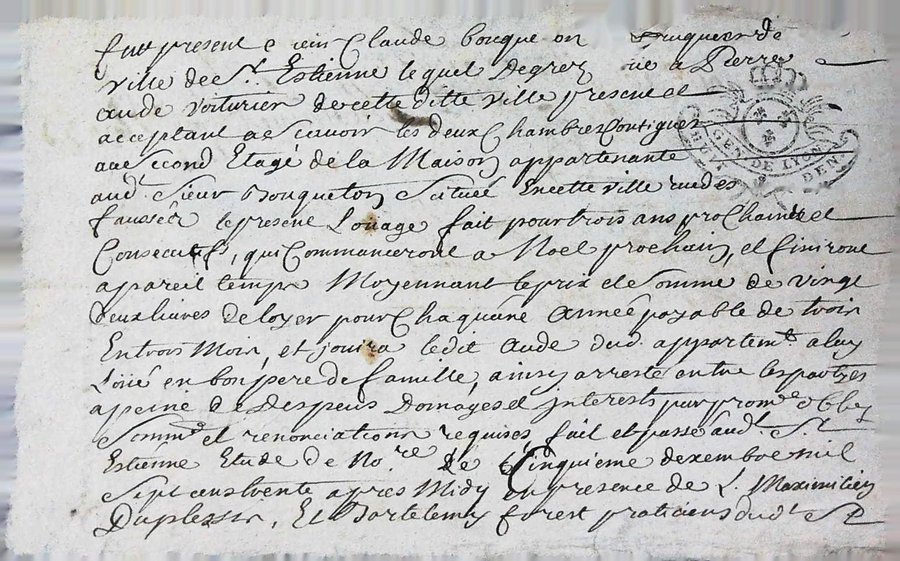 fut present sieur Claude bouque on
ville de St Estienne lequel De grez a Pierre
aude voiturier de cette ditte ville present et
acceptant a scavoir les deux Chambres Contigues
au second Etage de la Maison appartenante
aud. Sieur Bouqueton Scituée En cette ville rue des
fausses le present Louage fait pour trois ans prochains et
Consecutifs, qui Commanceront a Noel prochain, et finiront
a pareil temps Moyennant le prix et Somme de vingt
deux livres de loyer pour Chaquune Année payable de trois
En trois Mois, et jouira ledit aude dud. appartemt. a luy
Loüé en bon pere de famille, ainsy arresté entre les parties
a peine de Despens Domages et Interests par prome. Obli
Soumn. et renonciations requises, fait et passé aud. St
Estienne Etude de Nore. le Cinquieme dexembre mil
Sept cens trente apres Midy En presence de S. Maximilien
Duplessis, Et Bartelemy forest praticiens dud. St
GEN. DE LYON